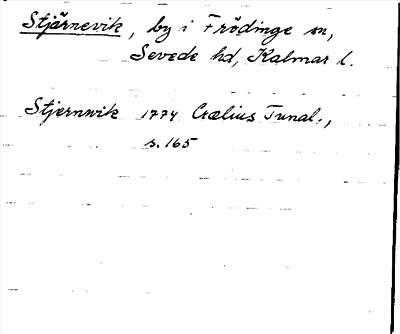 Stjärnevik, by i Frödinge sn,
Sevede hd, Kalmar l.
Stjernwik 1774 Crælius Tunal.,
s. 165